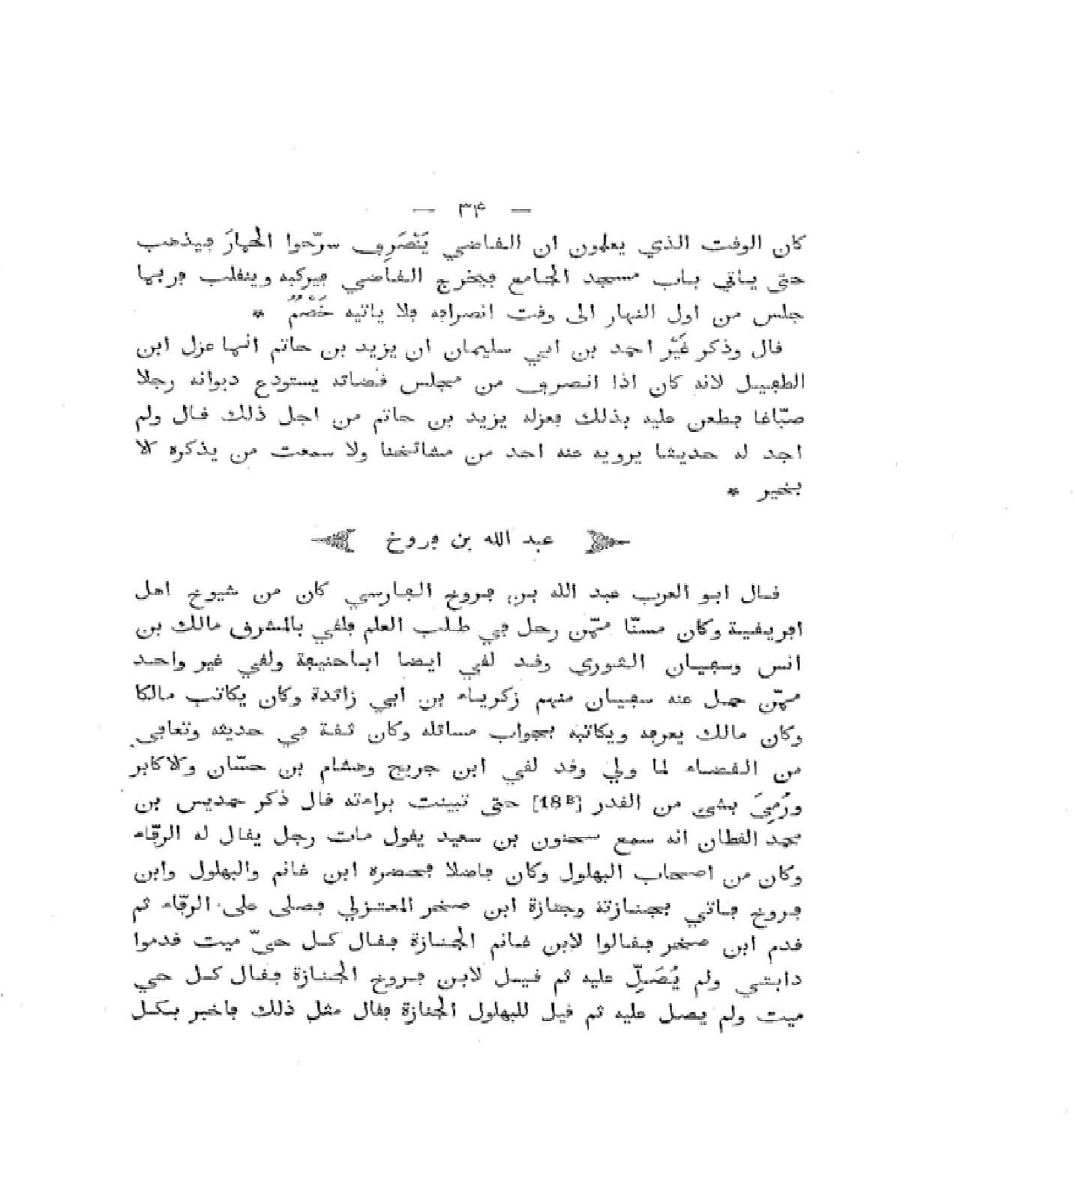 — ٣۴ —
كان الوقت الذي يعلمون ان القاضي يَنْصَرِف سرّحوا الحمارَ فيذهب
حتى ياتي باب مسجد الجامع فيخرج القاضي فيركبه وينقلب فربما
جلس من اول النهار الى وقت انصرافه فلا ياتيه خَصْمٌ *
قال وذكر غَيْر احمد بن ابي سليمان ان يزيد بن حاتم انما عزل ابن
الطفيل لانه كان اذا انصرف من مجلس قضائه يستودع ديوانه رجلا
صبّاغا فطعن عليه بذلك فعزله يزيد بن حاتم من اجل ذلك قال ولم
اجد له حديثا يرويه عنه احد من مشائخنا ولا سمعت من يذكره الا
بخير *
عبد الله بن فروخ
قال ابو العرب عبد الله بن فروخ الفارسي كان من شيوخ اهل
افريقية وكان مسنّا ممّن رحل في طلب العلم فلقي بالمشرق مالك بن
انس وسفيان الثوري وقد لقي ايضا اباحنيفة ولقي غير واحد
ممّن حمل عنه سفيان منهم زكرياء بن ابي زائدة وكان يكاتب مالكا
وكان مالك يعرفه ويكاتبه بجواب مسائله وكان ثقة في حديثه وتعافى
من القضاء لما ولي وقد لقي ابن جريج وهشام بن حسّان والاكابر
ورُمِيَ بشىء من القدر [18ᴮ] حتى تبينت براءته قال ذكر حمديس بن
محمد القطان انه سمع سحنون بن سعيد يقول مات رجل يقال له الرفّاء
وكان من اصحاب البهلول وكان فاضلا فحضره ابن غانم والبهلول وابن
فروخ فاتي بجنازته وجنازة ابن صخر المعتزلي فصلى على الرفّاء ثم
قدم ابن صخر فقالوا لابن غانم الجنازة فقال كل حيّ ميت قدموا
دابتي ولم يُصَلِّ عليه ثم قيل لابن فروخ الجنازة فقال كل حي
ميت ولم يصل عليه ثم قيل للبهلول الجنازة فقال مثل ذلك فاخبر بكل